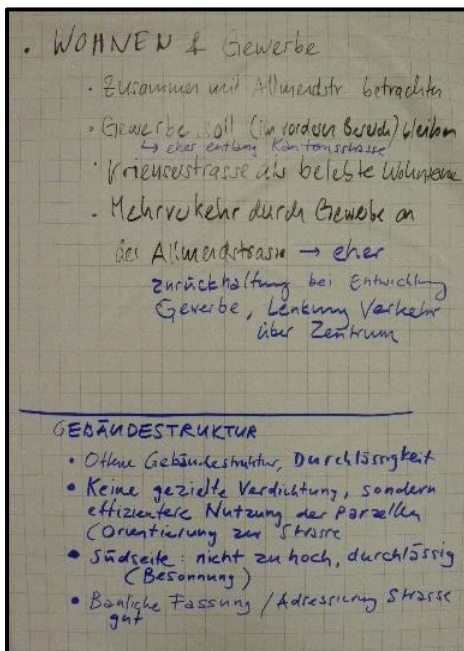 • WOHNEN & Gewerbe
• Zusammen mit Allmendstr. betrachten
• Gewerbe soll (im vorderen Bereich) bleiben
↳ eher entlang Kantonsstrasse
• Krienserstrasse als belebte Wohnzone
• Mehrverkehr durch Gewerbe an
der Allmendstrasse → eher
zurückhaltung bei Entwicklung
Gewerbe, Lenkung Verkehr
über Zentrum
GEBÄUDESTRUKTUR
• Offene Gebäudestruktur, Durchlässigkeit
• Keine gezielte Verdichtung, sondern
effizientere Nutzung der Parzellen
(Orientierung zur Strasse
• Südseite: nicht zu hoch, durchlässig
(Besonnung)
• Bauliche Fassung / Adressierung Strasse
gut